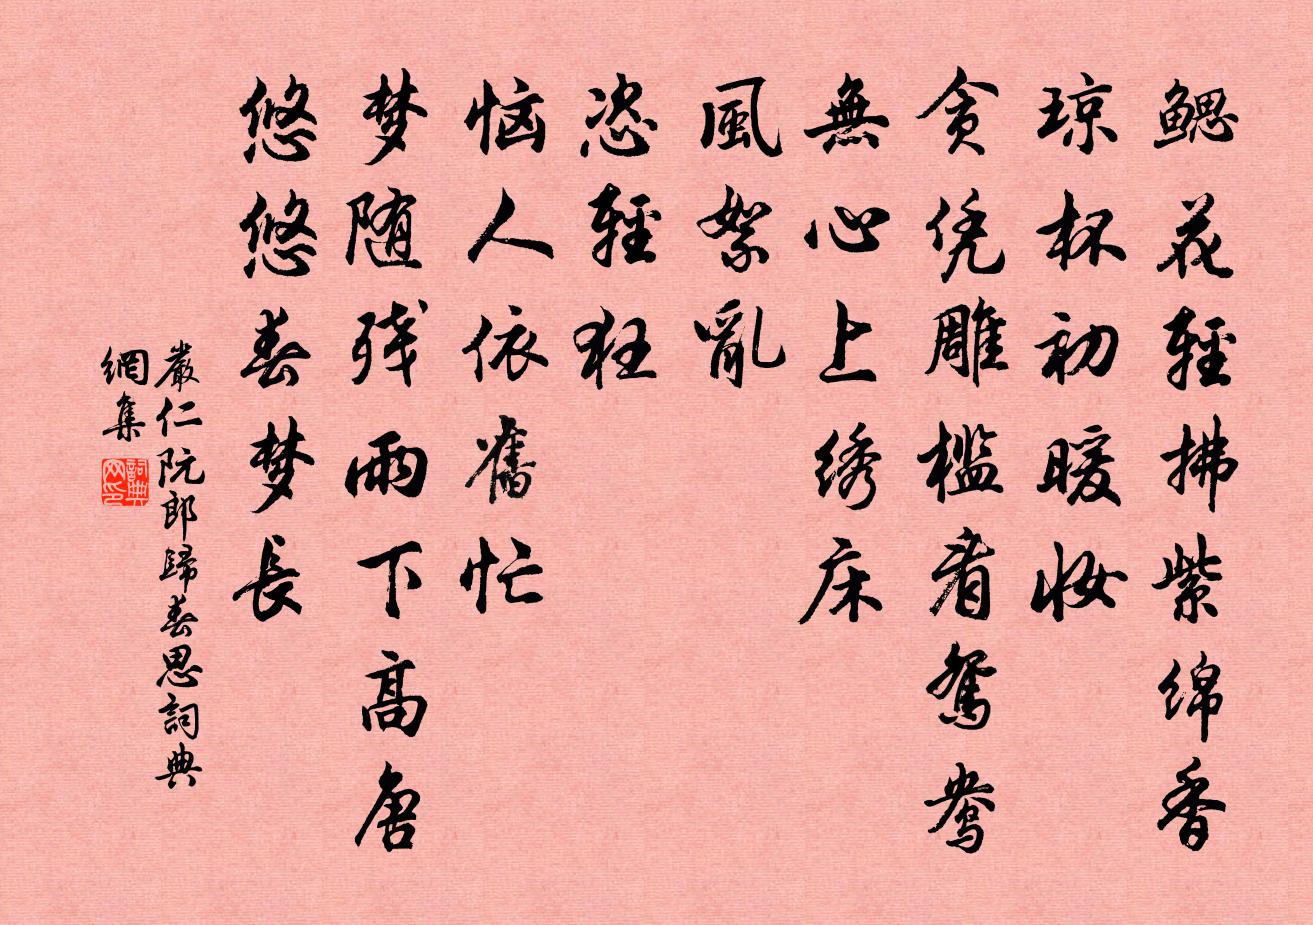 鳃花輕拂紫绵香
琼杯初暖妆
贪凭雕槛看鸳鸯
無心上绣床
風絮亂
恣輕狂
恼人依舊忙
梦随残雨下高唐
悠悠春梦長
嚴仁阮郎歸春思詞典
網集
詞典
网印